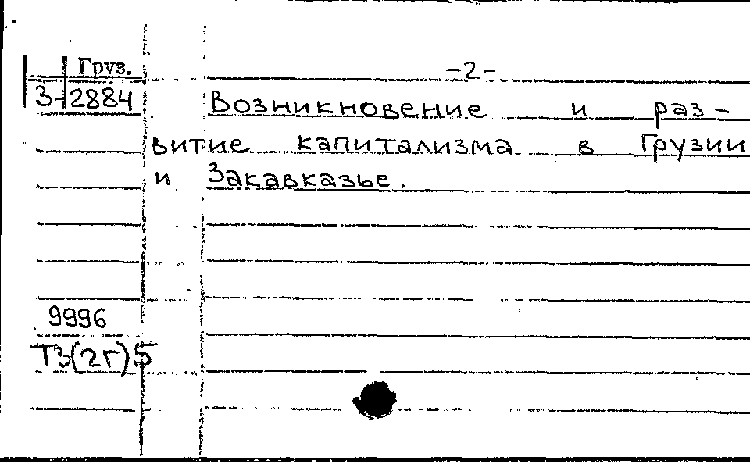 Груз.
-2-
3-2884
Возникновение и раз-
витие капитализма в Грузии
и Закавказье.
9996
Т3(2Г)5